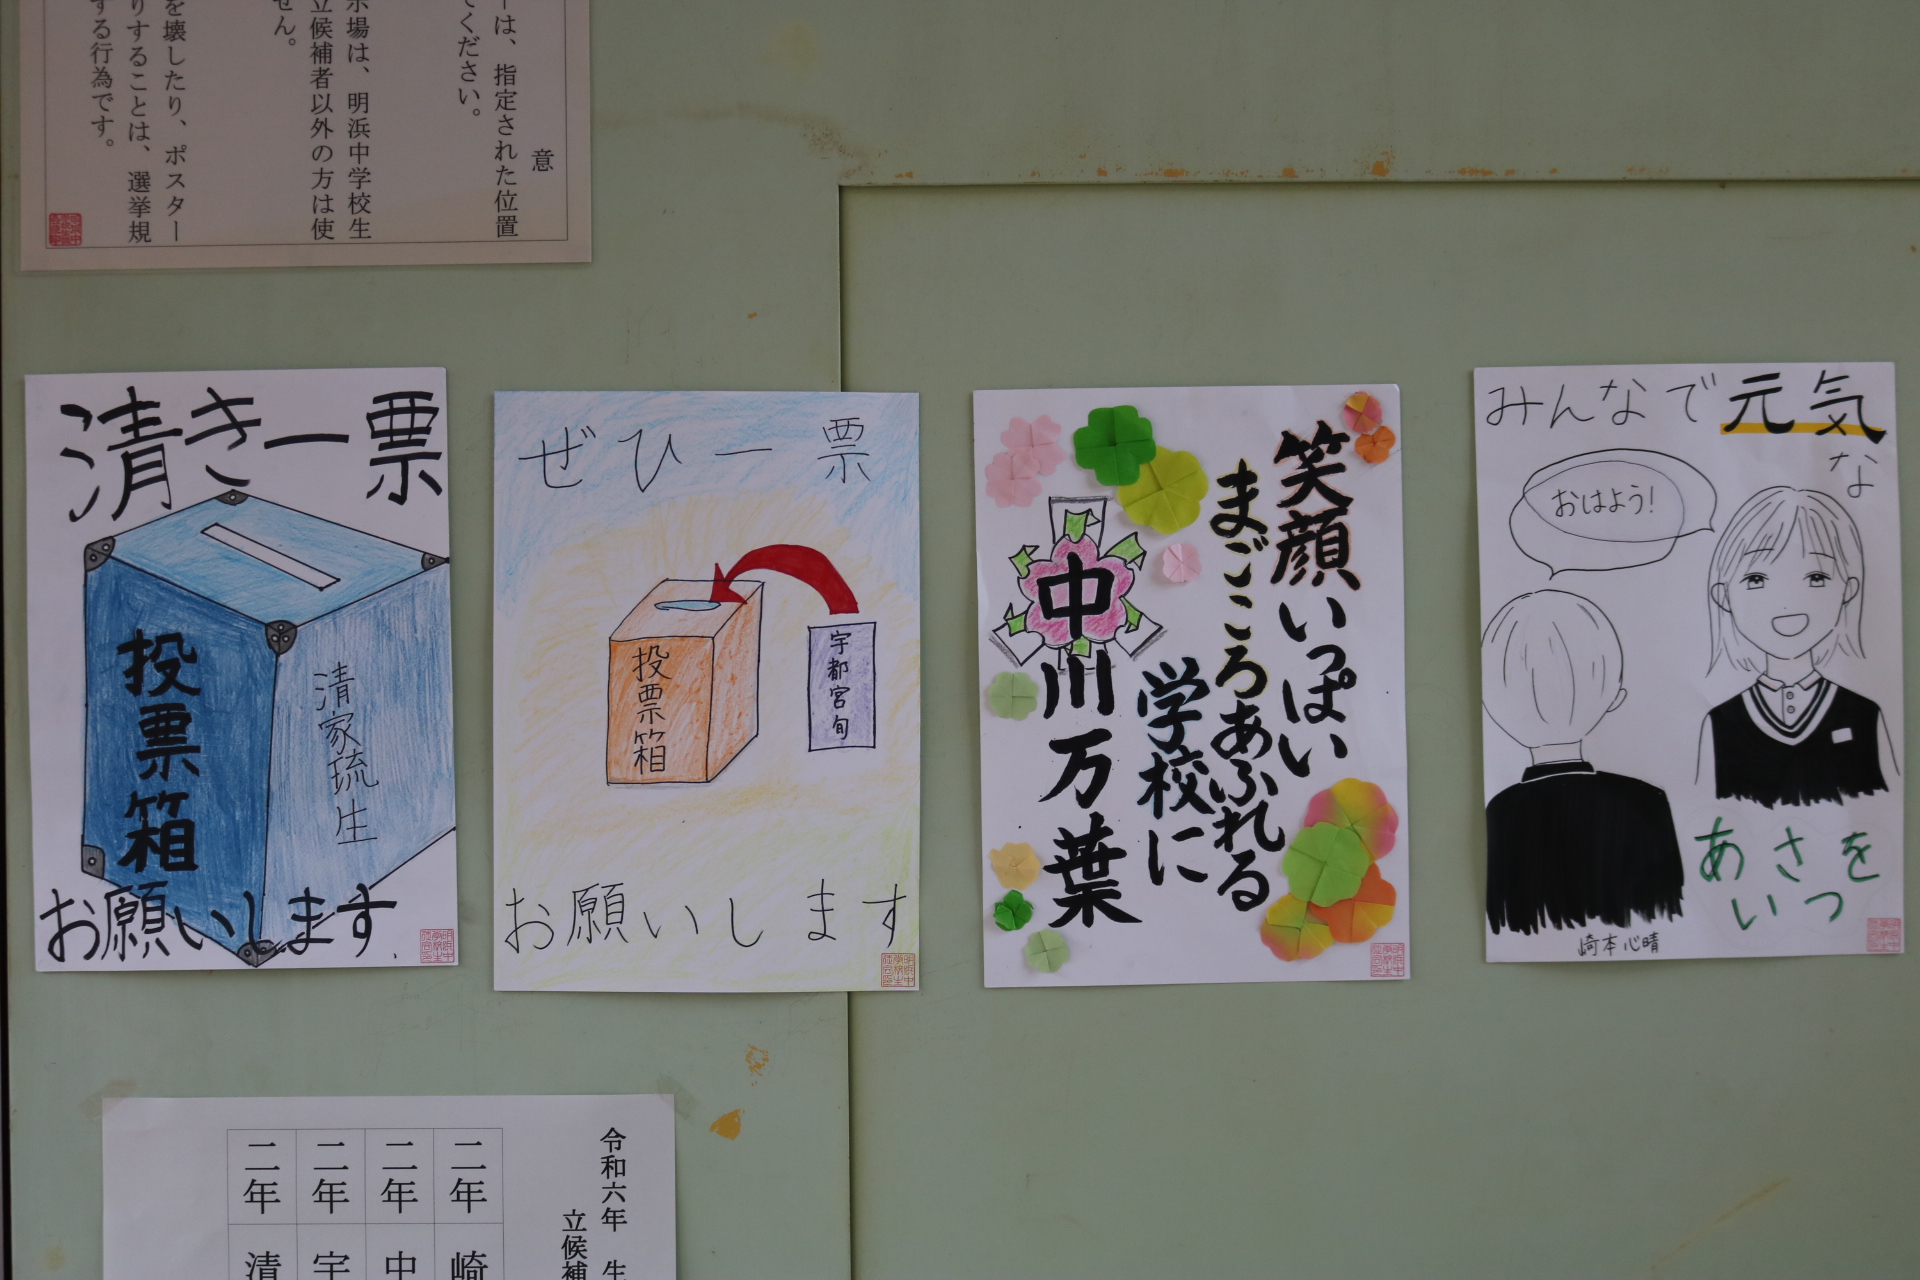 意
は、指定された位置
てください。
示場は、明浜中学校生
立候補者以外の方は使
せん。
を壊したり、ポスター
りすることは、選挙規
する行為です。
清き一票
投票箱
清家琉生
お願いします.
ぜひ一票
投票箱
宇都宮旬
お願いします
笑顔いっぱい
まごころあふれる
学校に
中川万葉
みんなで元気
な
おはよう!
あさを
いつ
崎本心晴
令和六年 生
立候補
二年 崎
二年 中
二年 宇
二年 清